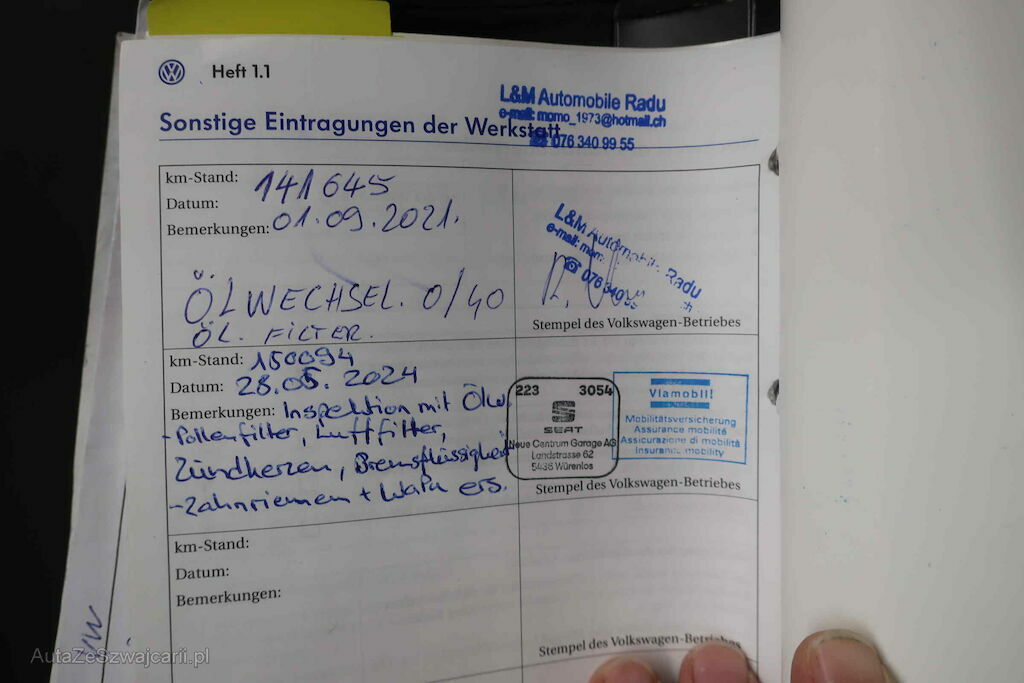 Heft 1.1
L&M Automobile Radu
e-mail: momo_1973@hotmail.ch
☎ 076 340 99 55
Sonstige Eintragungen der Werkstatt
km-Stand: 141645
Datum:
Bemerkungen: 01.09.2021.
ÖLWECHSEL. 0/40
ÖL. FILTER.
L&M Automobile Radu
e-mail: mom
☎ 076 340
Stempel des Volkswagen-Betriebes
km-Stand: 150094
Datum: 28.05.2024
Bemerkungen: Inspektion mit Ölw.
-Pollenfilter, Luftfilter,
Zündkerzen, Bremsflüssigkeit
-Zahnriemen + WaPu ers.
223 3054
SEAT
Neue Centrum Garage AG
Landstrasse 62
5436 Würenlos
Viamobil!
Mobilitätsversicherung
Assurance mobilité
Assicurazione di mobilità
Insurance mobility
Stempel des Volkswagen-Betriebes
km-Stand:
Datum:
Bemerkungen:
Stempel des Volkswagen-Betriebes
VW
AutaZeSzwajcarii.pl